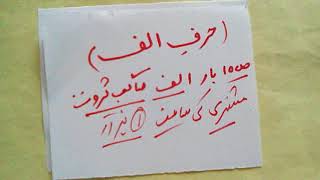 (حرف الف)
۱۵۰ بار الف مکتب ثروت
مشتری کی ساعت ① ہزار